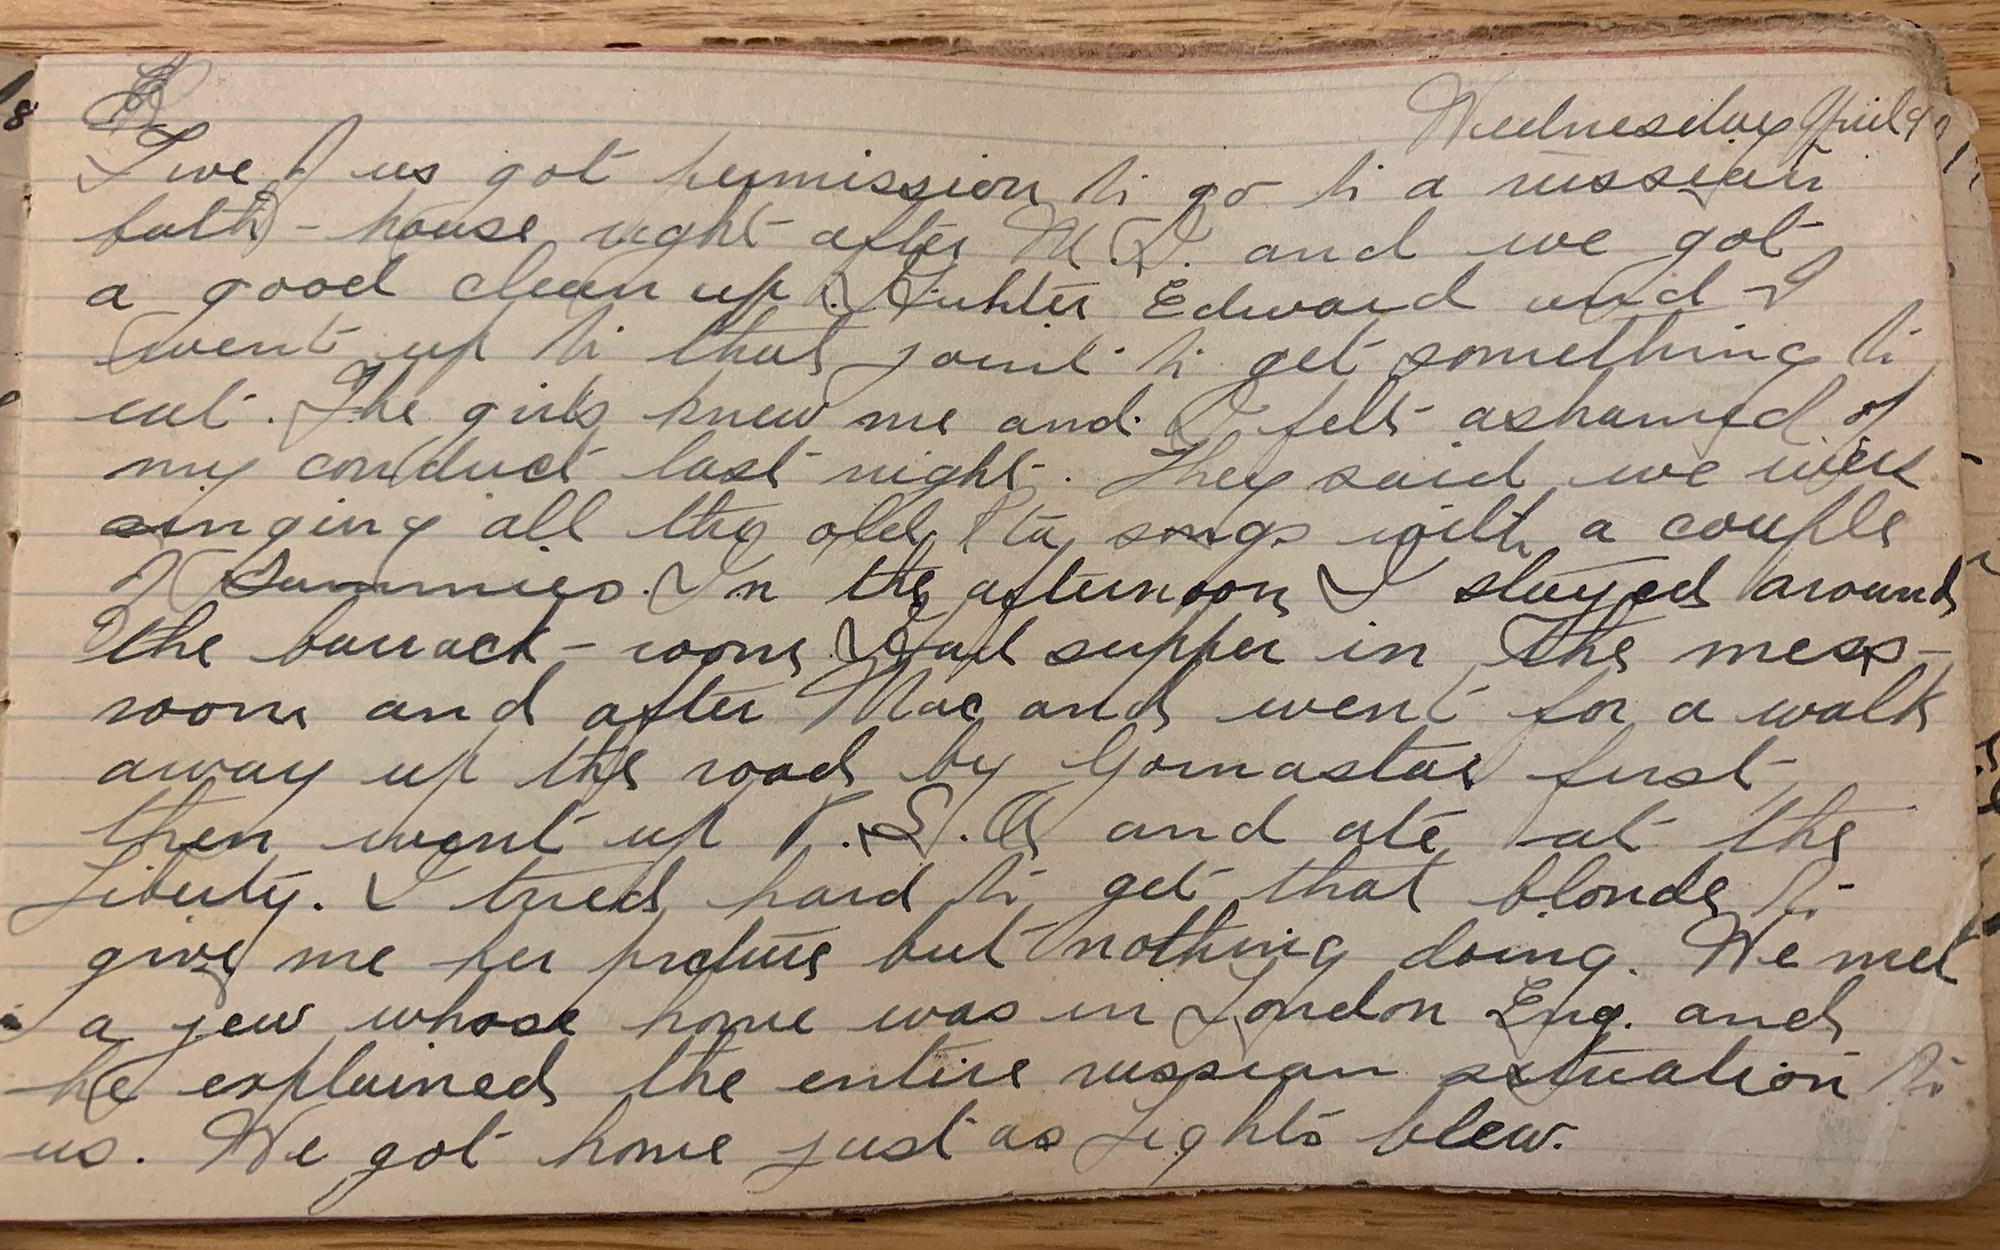 8
Wednesday April 9
Five of us got permission to go to a russian
bath-house right after M.I. and we got
a good clean up. Edward and I
went up to that joint to get something to
eat. The girls knew me and I felt ashamed of
my conduct last night. They said we were
singing all the old songs with a couple
of Sammies. In the afternoon I stayed around
the barrack-room Had supper in the mess-
room and after Mac and went for a walk
away up the road by Gornastai first
then went up and ate at the
Liberty. I tried hard to get that blonde to
give me her picture but nothing doing. We met
a jew whose home was in London Eng. and
he explained the entire russian situation to
us. We got home just as Lights blew.